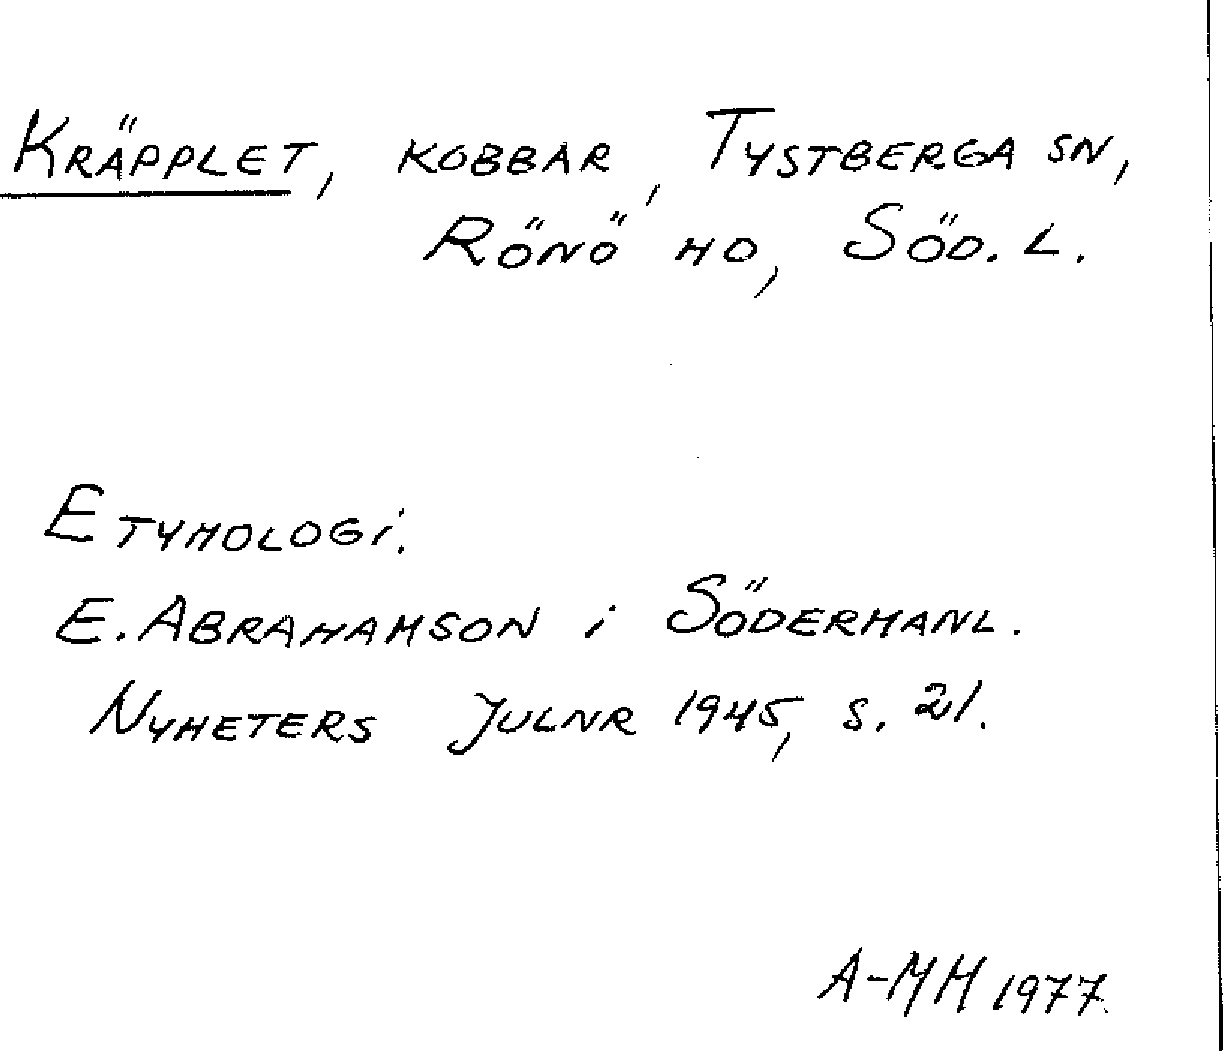 KRÄPPLET, KOBBAR, TYSTBERGA SN,
RÖNÖ HD, SÖD. L.
ETYMOLOGI.
E. ABRAHAMSON i SÖDERMANL.
NYHETERS JULNR 1945, S. 21.
A-MH 1977.